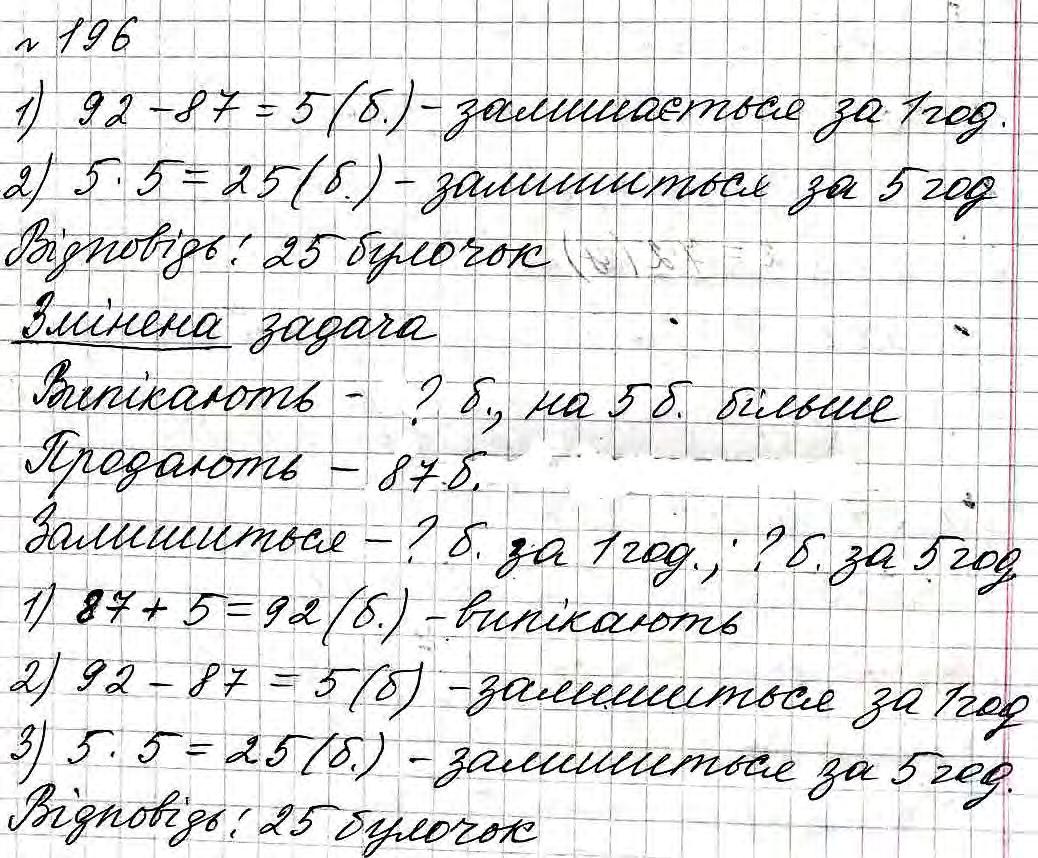 № 196
1) 92 - 87 = 5 (б.) - залишається за 1 год.
2) 5 · 5 = 25 (б.) - залишиться за 5 год
Відповідь: 25 булочок
Змінена задача
Випікають - ? б., на 5 б. більше
Продають - 87 б.
Залишиться - ? б. за 1 год.; ? б. за 5 год
1) 87 + 5 = 92 (б.) - випікають
2) 92 - 87 = 5 (б) - залишиться за 1 год
3) 5 · 5 = 25 (б.) - залишиться за 5 год.
Відповідь: 25 булочок